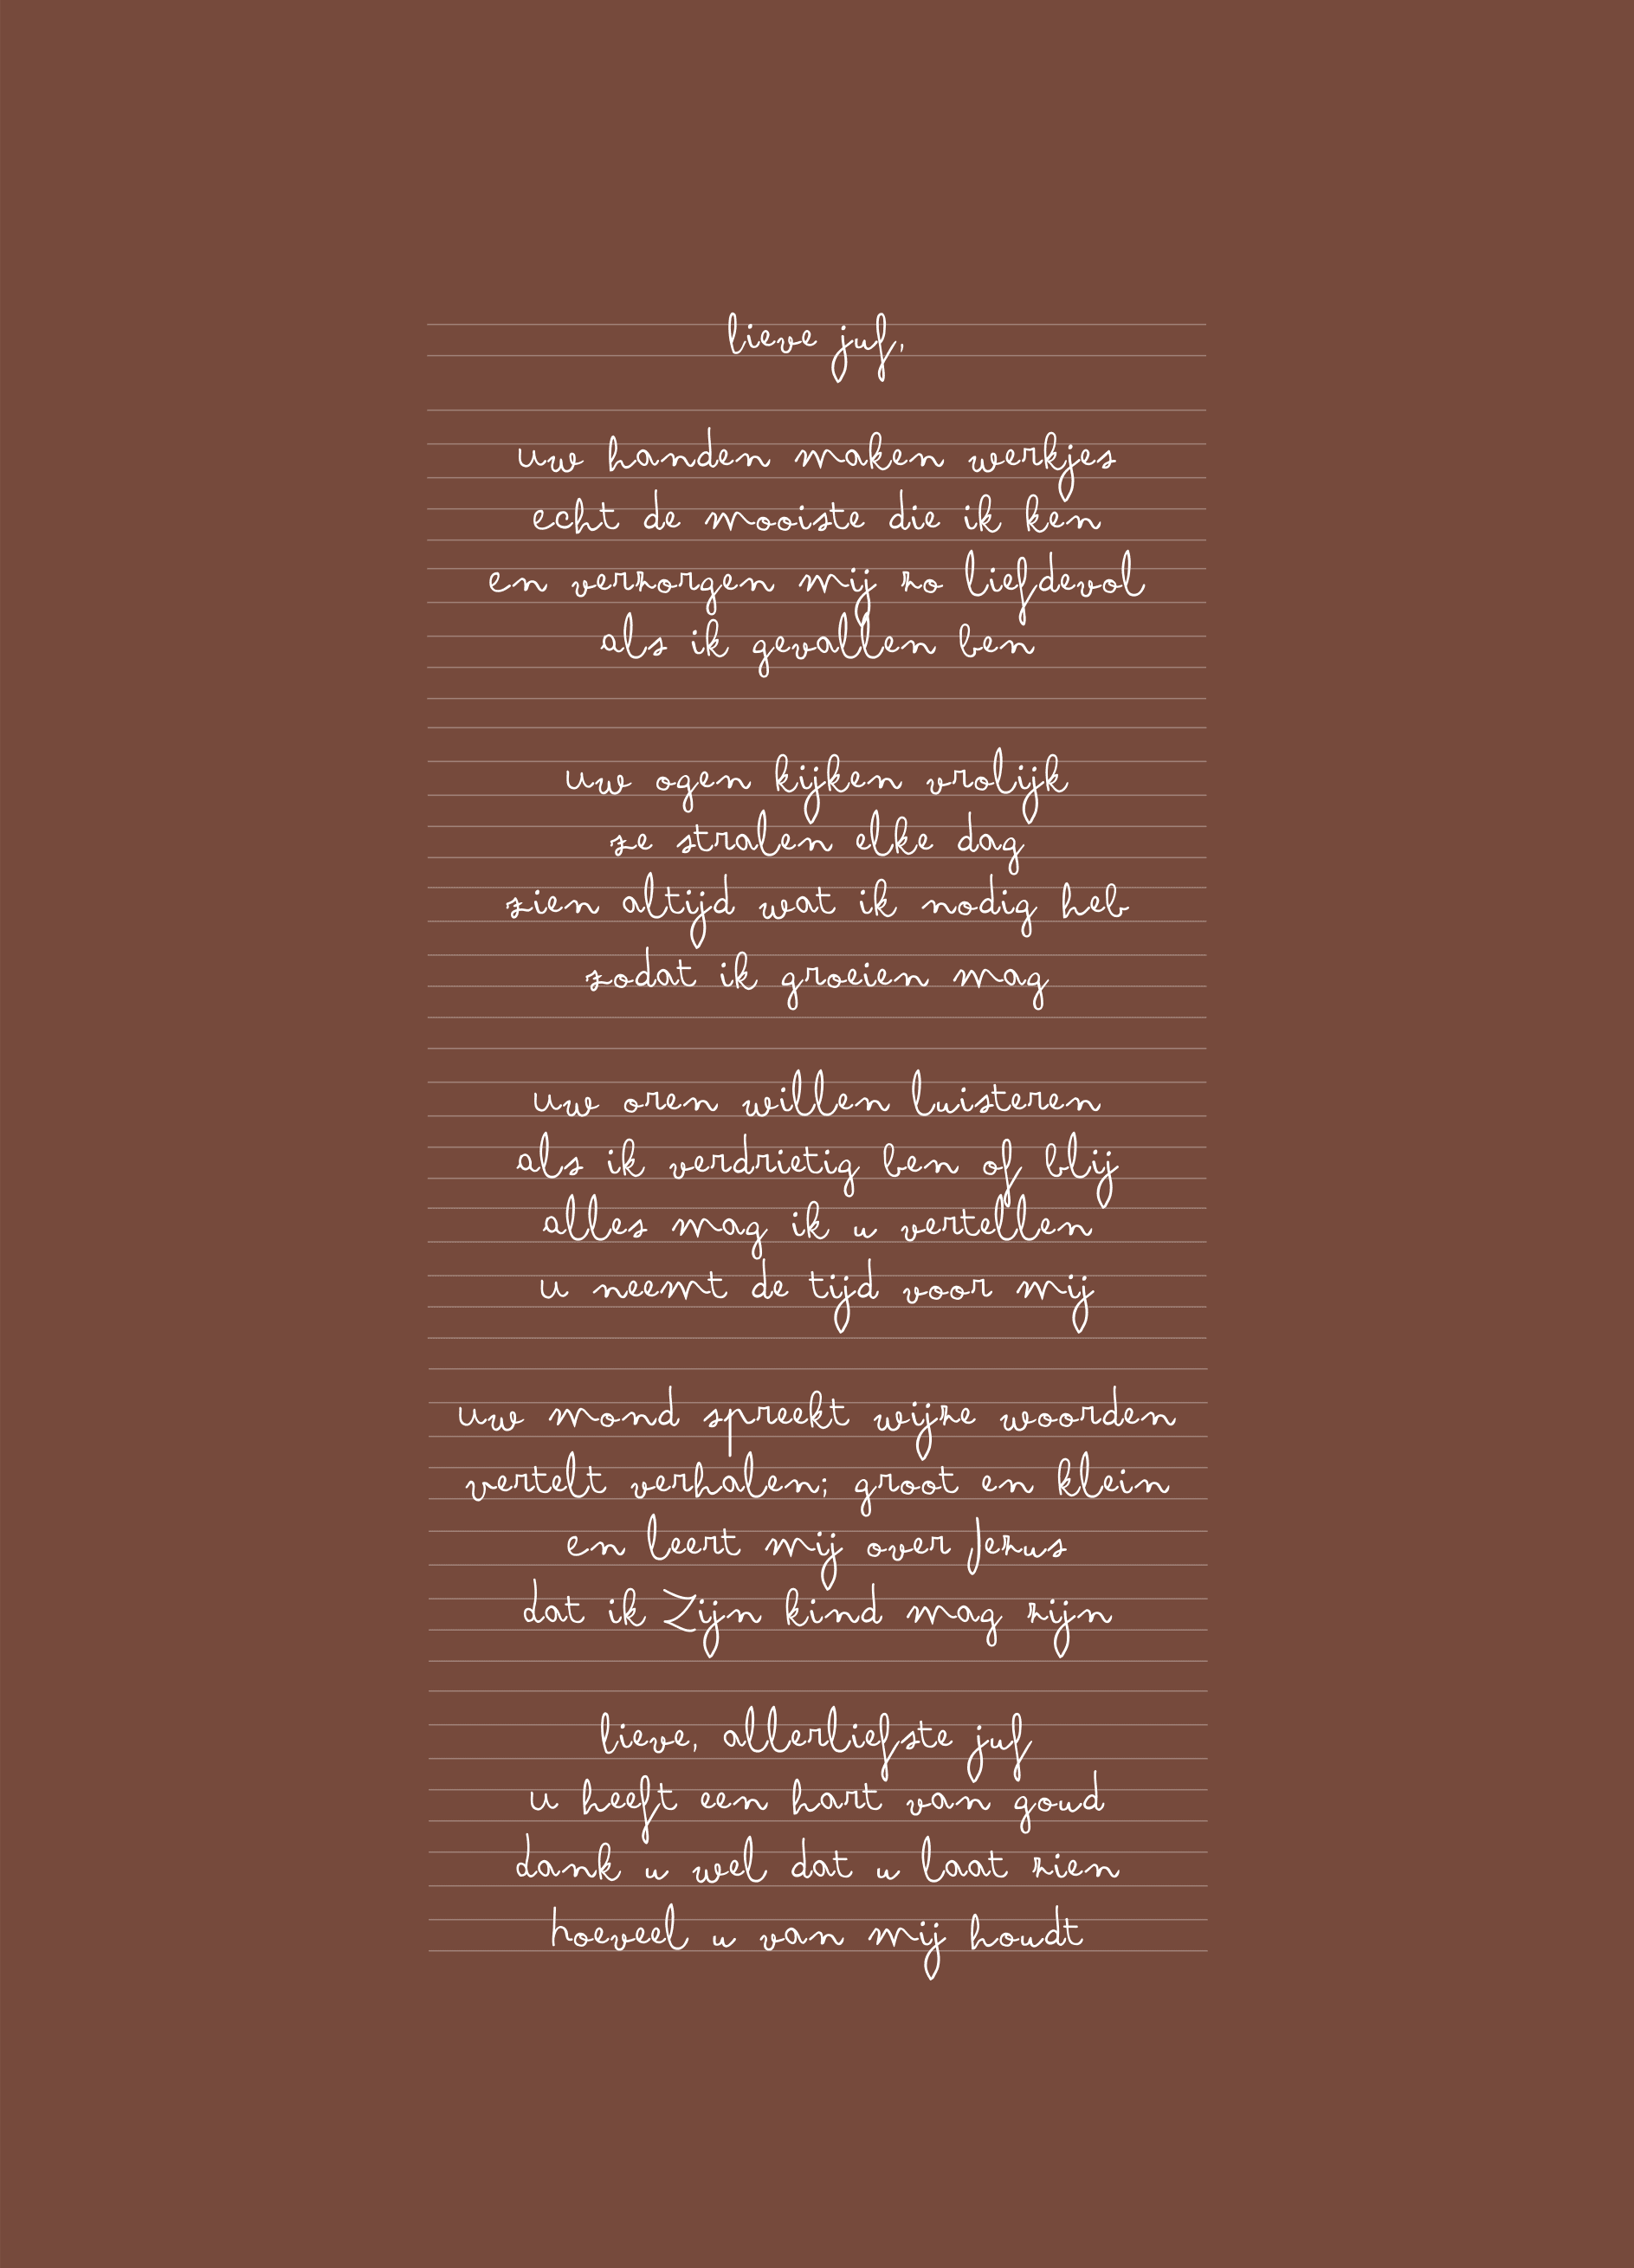 lieve juf,
uw handen maken werkjes
echt de mooiste die ik ken
en verzorgen mij zo liefdevol
als ik gevallen ben
uw ogen kijken vrolijk
ze stralen elke dag
zien altijd wat ik nodig heb
zodat ik groeien mag
uw oren willen luisteren
als ik verdrietig ben of blij
alles mag ik u vertellen
u neemt de tijd voor mij
uw mond spreekt wijze woorden
vertelt verhalen; groot en klein
en leert mij over Jezus
dat ik Zijn kind mag zijn
lieve, allerliefste juf
u heeft een hart van goud
dank u wel dat u laat zien
hoeveel u van mij houdt